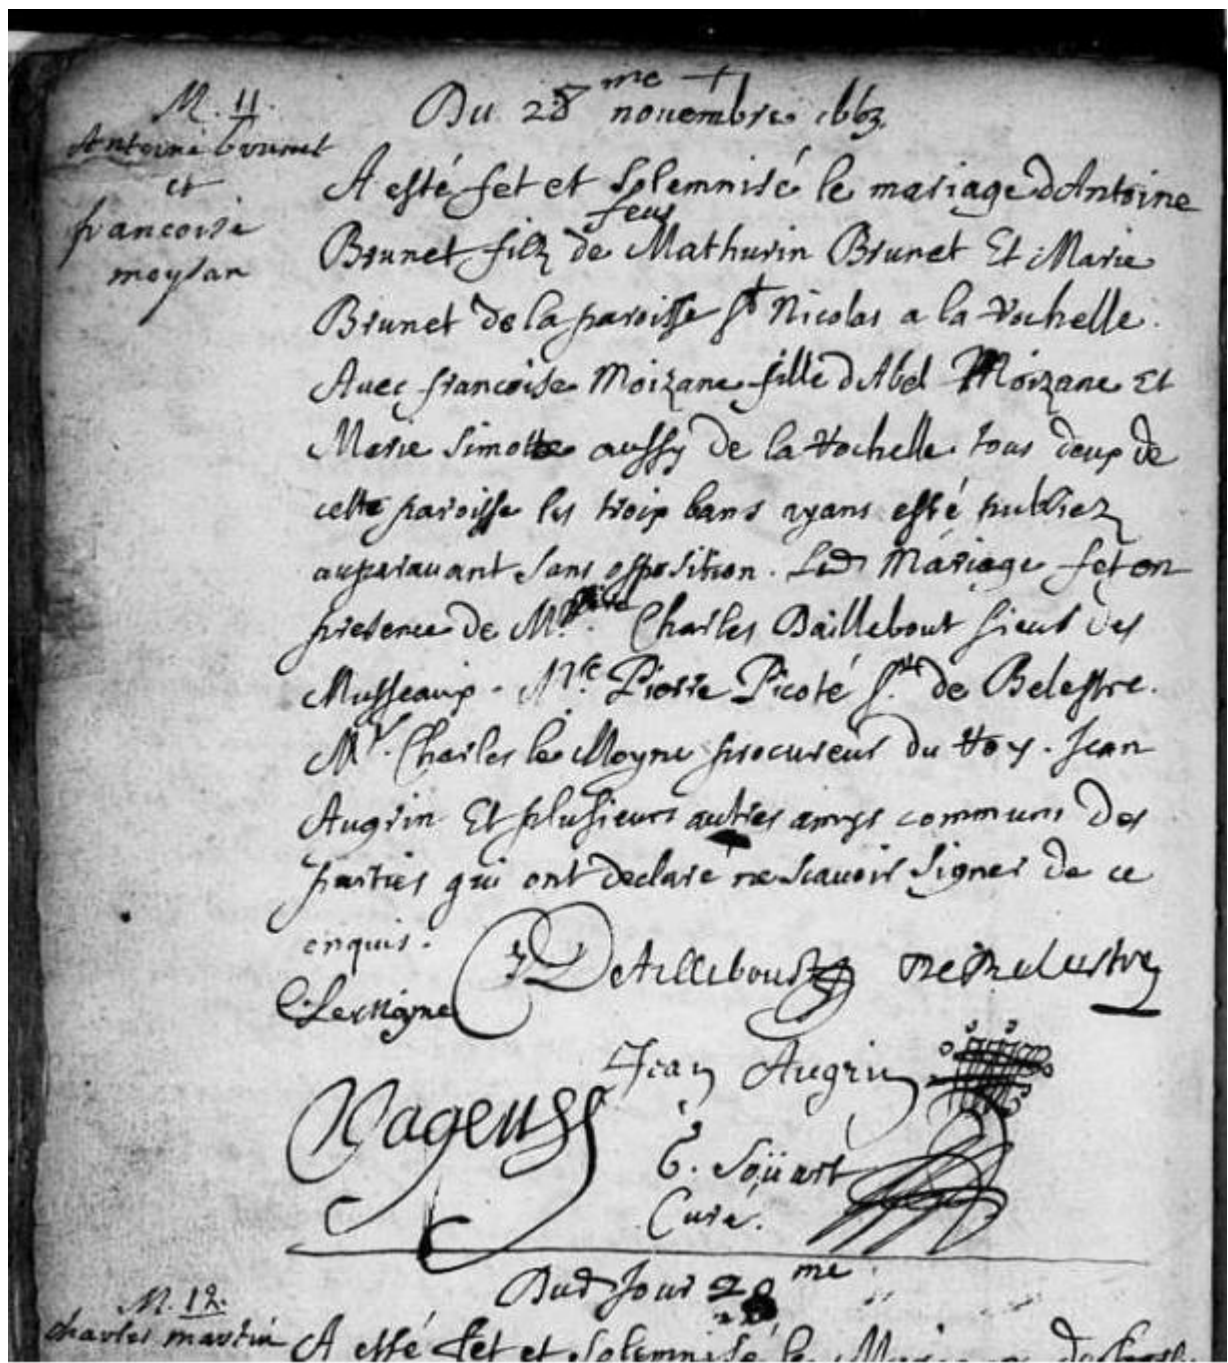 M. 11.
Antoine brunet
et
francoise
moysan
Du 28me novembre 1663.
A esté fet et solemnisé le mariage dAntoine
Brunet filz de feus Mathurin Brunet Et Marie
Brunet de la paroisse St Nicolas a la Rochelle.
Avec francoise Moizane fille dAbel Moizane Et
Marie Simotte aussy de la Rochelle tous deux de
cette paroisse les troix bans ayans esté publiez
auparavant sans opposition. Led Mariage fet en
presence de Charles Daillebout sieur des
Musseaux. Mre Pierre Picoté Sr de Belestre.
Mr. Charles le Moyne procureur du Roy. Jean
Augrin Et plusieurs autres amys communs des
parties qui ont declaré ne scavoir signer de ce
enquis.
DAilleboust
C. Lemoyne
Jean Augrin
G. Soüart
Curé.
Dud Jour 28me.
M. 12.
charles martin
A esté fet et solemnisé le